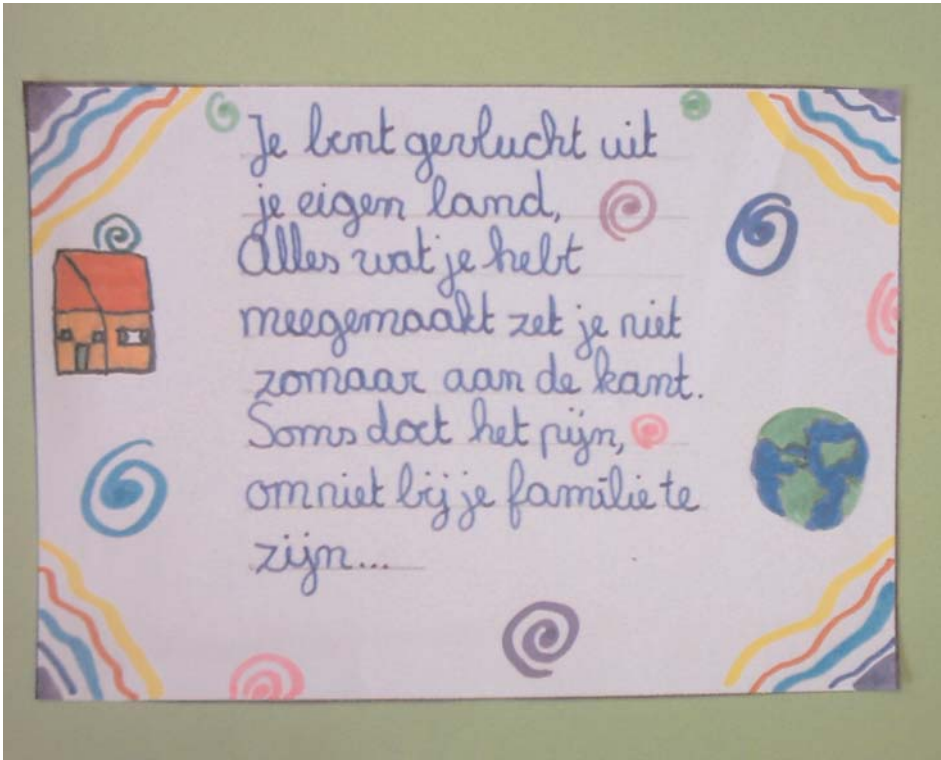 Je bent gevlucht uit
je eigen land,
Alles wat je hebt
meegemaakt zet je niet
zomaar aan de kant.
Soms doet het pijn,
om niet bij je familie te
zijn...